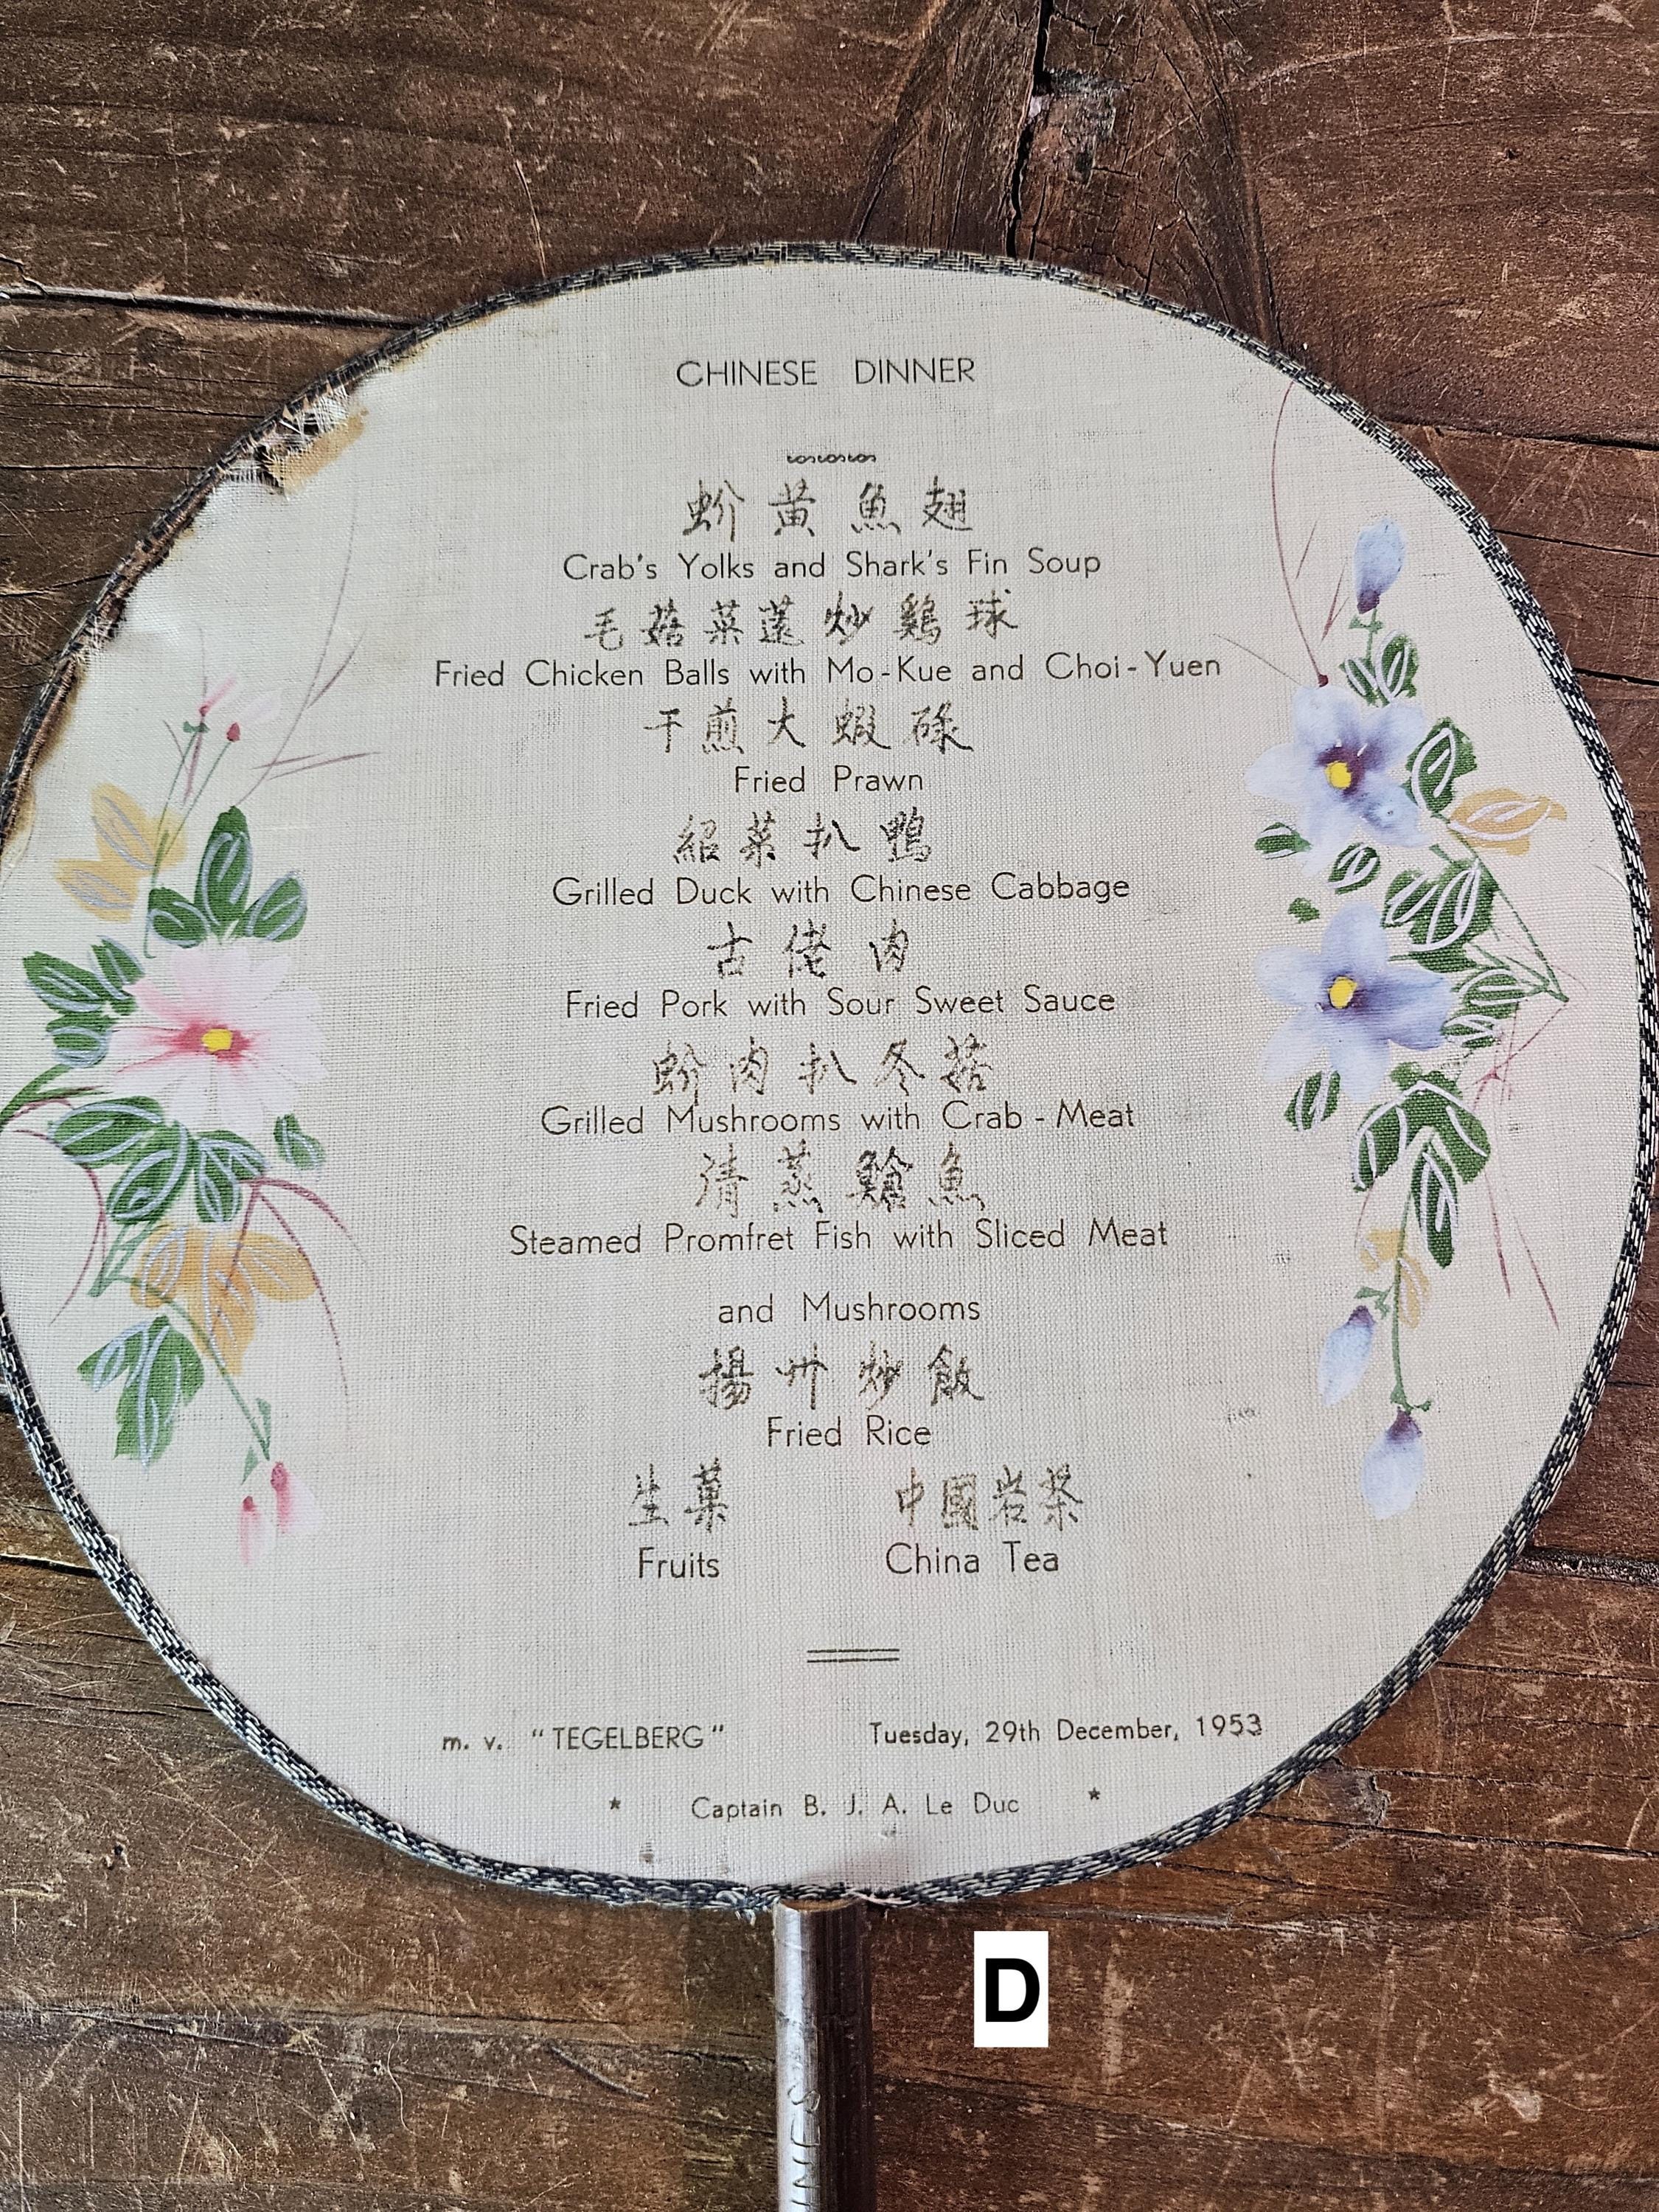 CHINESE DINNER
蚧黃魚翅
Crab's Yolks and Shark's Fin Soup
毛菇菜薳炒鷄球
Fried Chicken Balls with Mo-Kue and Choi-Yuen
干煎大蝦碌
Fried Prawn
紹菜扒鴨
Grilled Duck with Chinese Cabbage
古佬肉
Fried Pork with Sour Sweet Sauce
蚧肉扒冬菇
Grilled Mushrooms with Crab - Meat
清蒸鯧魚
Steamed Promfret Fish with Sliced Meat
and Mushrooms
揚州炒飯
Fried Rice
生菓 中國岩茶
Fruits China Tea
m. v. "TEGELBERG" Tuesday, 29th December, 1953
* Captain B. J. A. Le Duc *
D